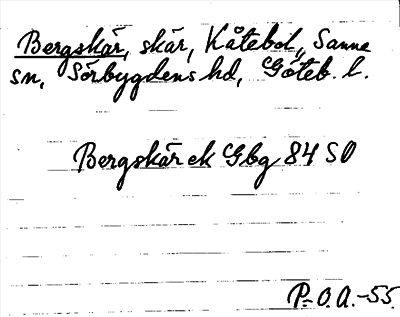 Bergskär, skär, Kåtebol, Sanne
sn, Sörbygdens hd, Göteb. l.
Bergskär ek Gbg 84 SO
P.-O.A.-55.